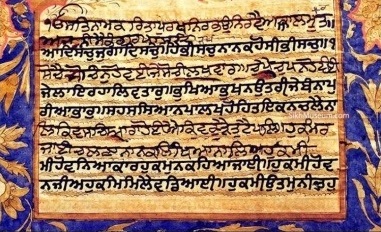 ੴਸਤਿਨਾਮੁਕਰਤਾਪੁਰਖੁਨਿਰਭਉਨਿਰਵੈਰੁਅਕਾਲਮੂਰਤਿ
ਆਦਿਸਚੁਜੁਗਾਦਿਸਚੁਹੈਭੀਸਚੁਨਾਨਕਹੋਸੀਭੀਸਚੁ॥੧॥
ਸੋਚੈਸੋਚਿਨਹੋਵਈਜੇਸੋਚੀਲਖਵਾਰ॥ਚੁਪੈਚੁਪਨਹੋਵਈ
ਜੇਲਾਇਰਹਾਲਿਵਤਾਰ॥ਭੁਖਿਆਭੁਖਨਉਤਰੀਜੇਬੰਨਾਪੁ
ਰੀਆਭਾਰ॥ਸਹਸਸਿਆਣਪਾਲਖਹੋਹਿਤਇਕਨਚਲੈਨਾ
ਲਿ॥ਕਿਵਸਚਿਆਰਾਹੋਈਐਕਿਵਕੂੜੈਤੁਟੈਪਾਲਿ॥ਹੁਕਮਿਰ
ਜਾਈਚਲਣਾਨਾਨਕਲਿਖਿਆਨਾਲਿ॥੧॥ਹੁਕ
ਮੀਹੋਵਨਿਆਕਾਰਹੁਕਮੁਨਕਹਿਆਜਾਈ॥ਹੁਕਮੀਹੋਵ
ਨਿਜੀਅਹੁਕਮਿਮਿਲੈਵਡਿਆਈ॥ਹੁਕਮੀਉਤਮੁਨੀਚੁਹੁ
SikhMuseum.com